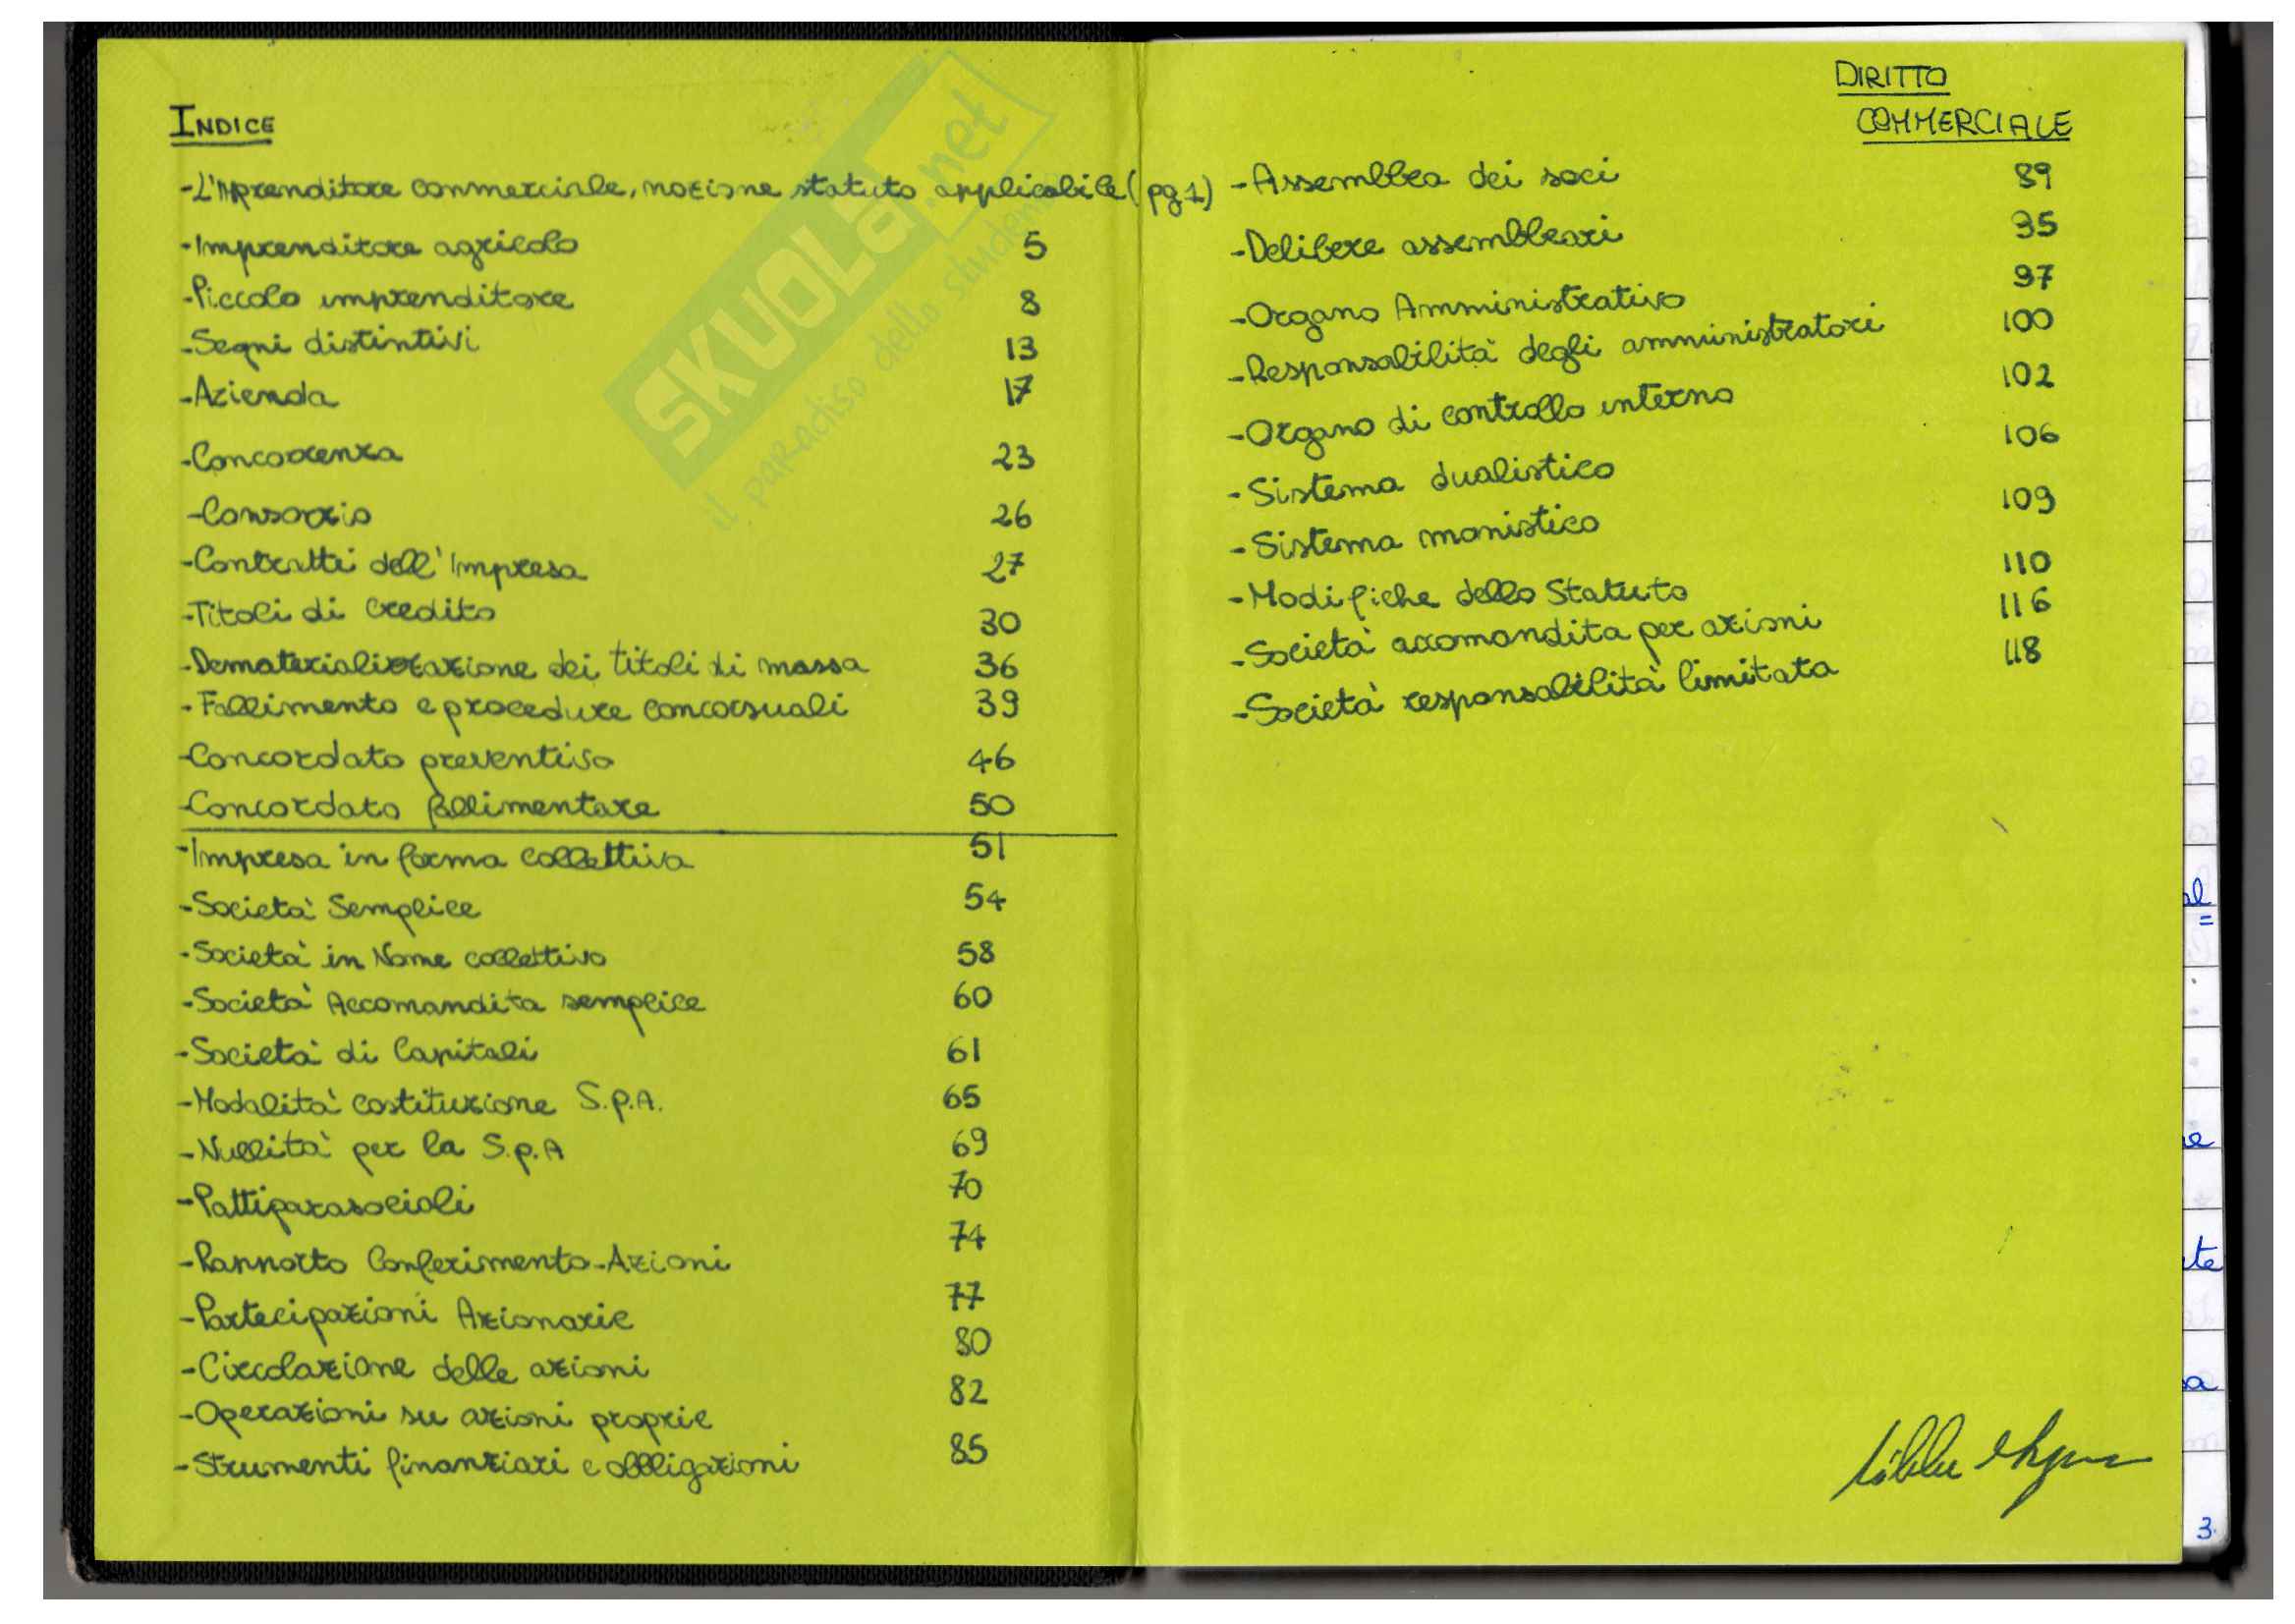 INDICE
-L'Imprenditore commerciale, nozione statuto applicabile (pg 1)
-Imprenditore agricolo 5
-Piccolo imprenditore 8
-Segni distintivi 13
-Azienda 17
-Concorrenza 23
-Consorzio 26
-Contratti dell'Impresa 27
-Titoli di credito 30
-Dematerializzazione dei titoli di massa 36
-Fallimento e procedure concorsuali 39
-Concordato preventivo 46
-Concordato fallimentare 50
-Impresa in forma collettiva 51
-Società Semplice 54
-Società in Nome collettivo 58
-Società Accomandita semplice 60
-Società di Capitali 61
-Modalità costituzione S.p.A. 65
-Nullità per la S.p.A 69
-Patti parasociali 70
-Rapporto Conferimento-Azioni 74
-Partecipazioni Azionarie 77
-Circolazione delle azioni 80
-Operazioni su azioni proprie 82
-Strumenti finanziari e obbligazioni 85
DIRITTO
COMMERCIALE
-Assemblea dei soci 89
-Delibere assembleari 95
-Organo Amministrativo 97
-Responsabilità degli amministratori 100
-Organo di controllo interno 102
-Sistema dualistico 106
-Sistema monistico 109
-Modifiche dello Statuto 110
-Società accomandita per azioni 116
-Società responsabilità limitata 118
SKUOLA.net
il paradiso dello studente
al
e
te
a
3